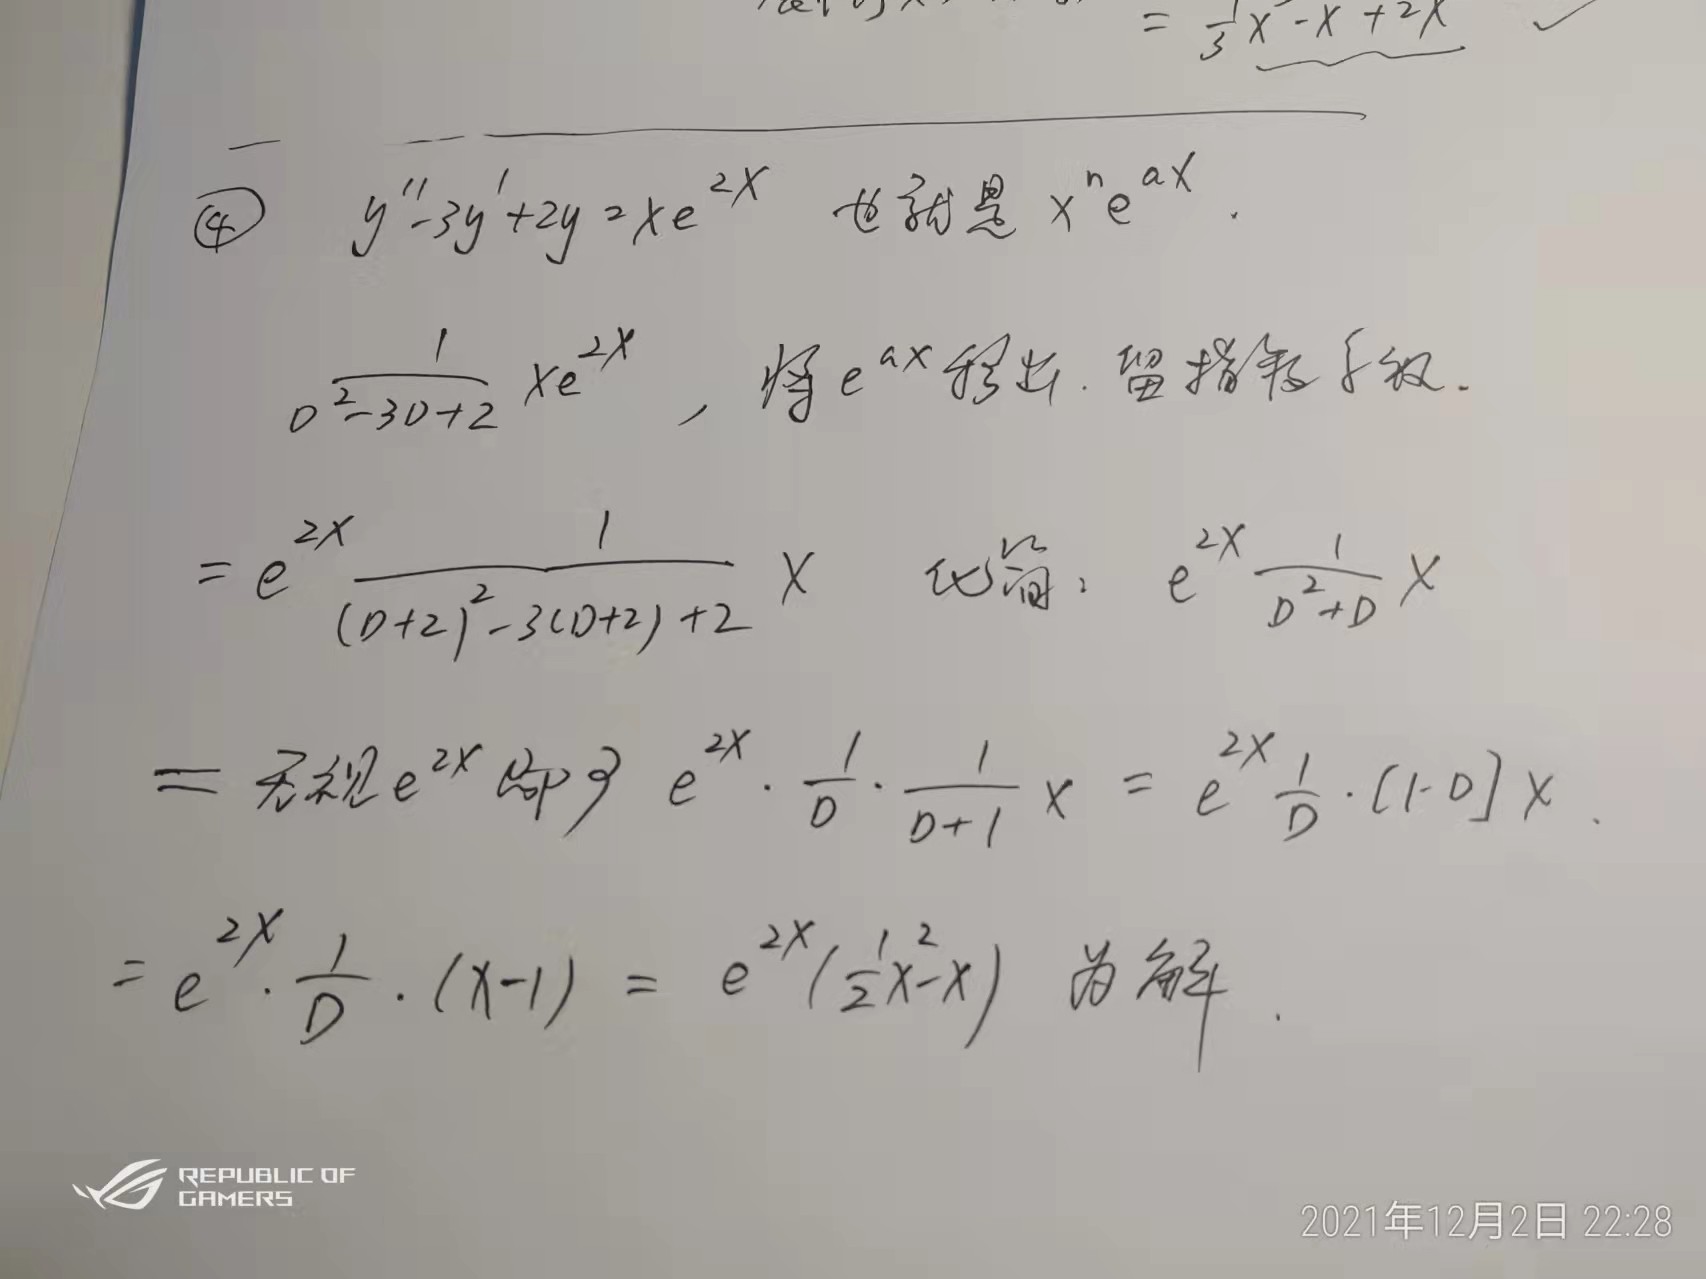 = 1/3 x - x + 2x ✓
④ y'' - 3y' + 2y = xe^{2x} 也就是 x^n e^{ax}.
1/(D^2-3D+2) xe^{2x}, 将e^{ax}移出. 留指数系数.
= e^{2x} 1/((D+2)^2-3(D+2)+2) x 化简: e^{2x} 1/(D^2+D) x
= 无视e^{2x}部分 e^{2x} · 1/D · 1/(D+1) x = e^{2x} 1/D · [1-D] x.
= e^{2x} · 1/D · (x-1) = e^{2x}(1/2 x^2 - x) 为解.
REPUBLIC OF
GAMERS
2021年12月2日 22:28